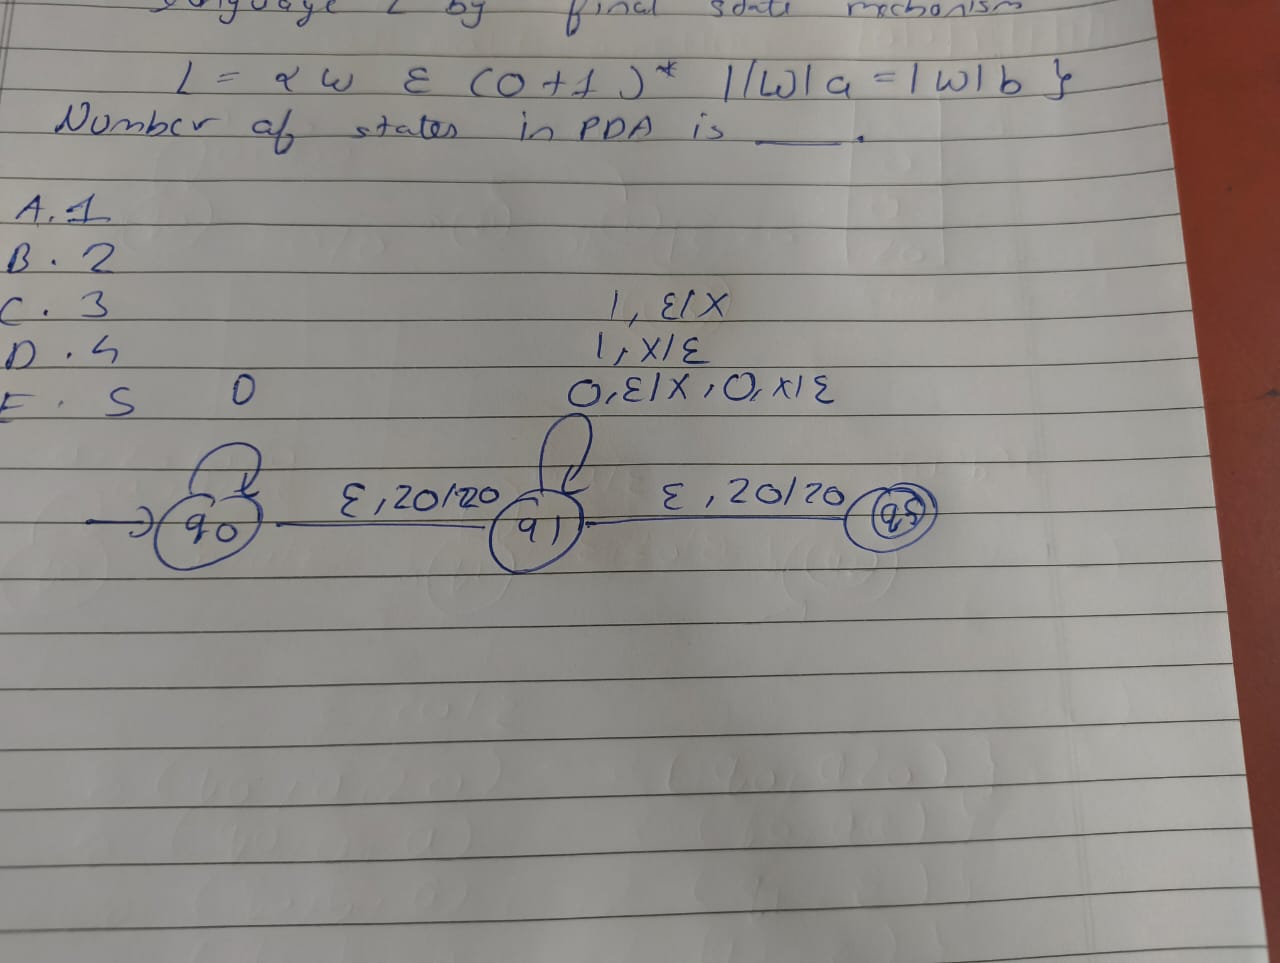 Language L by final state mechanism
L = { w ε (0+1)* | |w|a = |w|b }
Number of states in PDA is ____.
A. 1
B. 2
C. 3
D. 4
E. 5
0
1, ε/X
1, X/ε
0, ε/X, X/ε, 0, X/ε
ε, z0/z0
ε, z0/z0
q0
q1